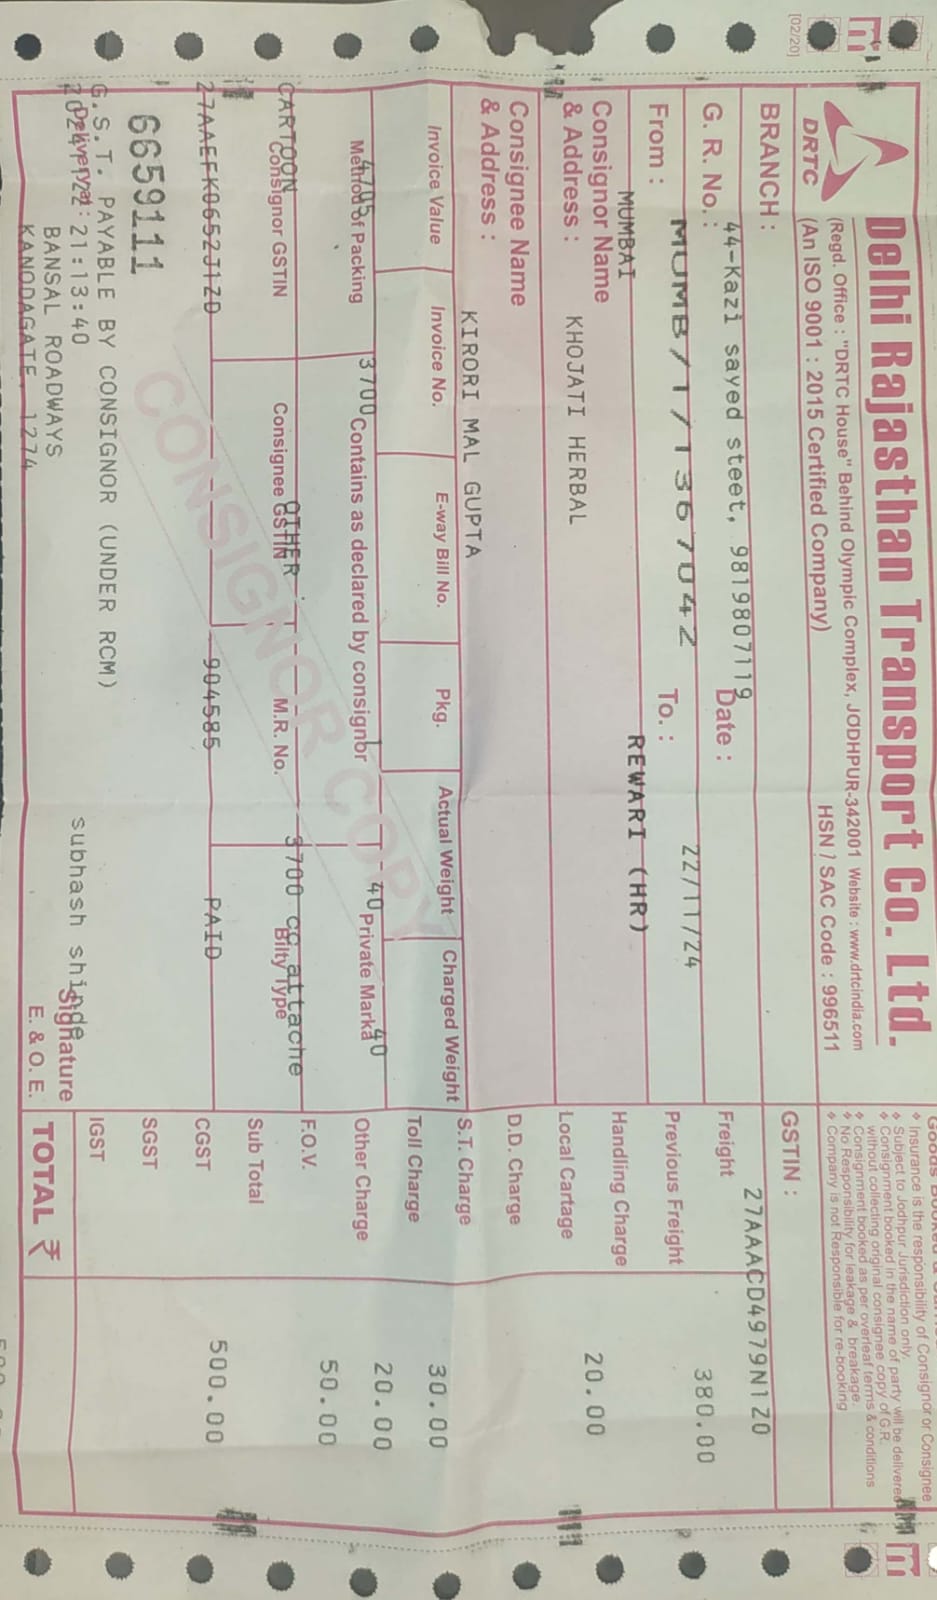 [02/20]
DRTC
Delhi Rajasthan Transport Co. Ltd.
(Regd. Office : "DRTC House" Behind Olympic Complex, JODHPUR-342001 Website : www.drtcindia.com
(An ISO 9001 : 2015 Certified Company)
HSN / SAC Code : 996511
❖ Insurance is the responsibility of Consignor or Consignee
❖ Subject to Jodhpur Jurisdiction only.
❖ Consignment booked in the name of party will be delivered
without collecting original consignee copy of G.R.
❖ Consignment booked as per overleaf terms & conditions
❖ No Responsibility for leakage & breakage.
❖ Company is not Responsible for re-booking
BRANCH :
44-Kazi sayed steet, 9819807119
GSTIN :
27AAACD4979N1Z0
G. R. No. :
MUMB/1/1367042
Date :
22/11/24
From :
MUMBAI
To. :
REWARI (HR)
Consignor Name
& Address :
KHOJATI HERBAL
Consignee Name
& Address :
KIRORI MAL GUPTA
Invoice Value
Invoice No.
E-way Bill No.
Pkg.
Actual Weight
Charged Weight
3700
1
40
40
Method of Packing
Contains as declared by consignor
Private Marka
CARTOON
OTHER
3700 cc attache
Consignor GSTIN
Consignee GSTIN
M.R. No.
Bilty Type
27AAEFK0652J1Z0
904585
PAID
6659111
G.S.T. PAYABLE BY CONSIGNOR (UNDER RCM)
Delivery at :
21:13:40
BANSAL ROADWAYS
KANODAGATE, 1274
subhash shinde
Signature
E. & O. E.
CONSIGNOR COPY
Freight 380.00
Previous Freight
Handling Charge
Local Cartage 20.00
D.D. Charge
S.T. Charge
Toll Charge 30.00
Other Charge 20.00
F.O.V. 50.00
Sub Total
CGST 500.00
SGST
IGST
TOTAL ₹